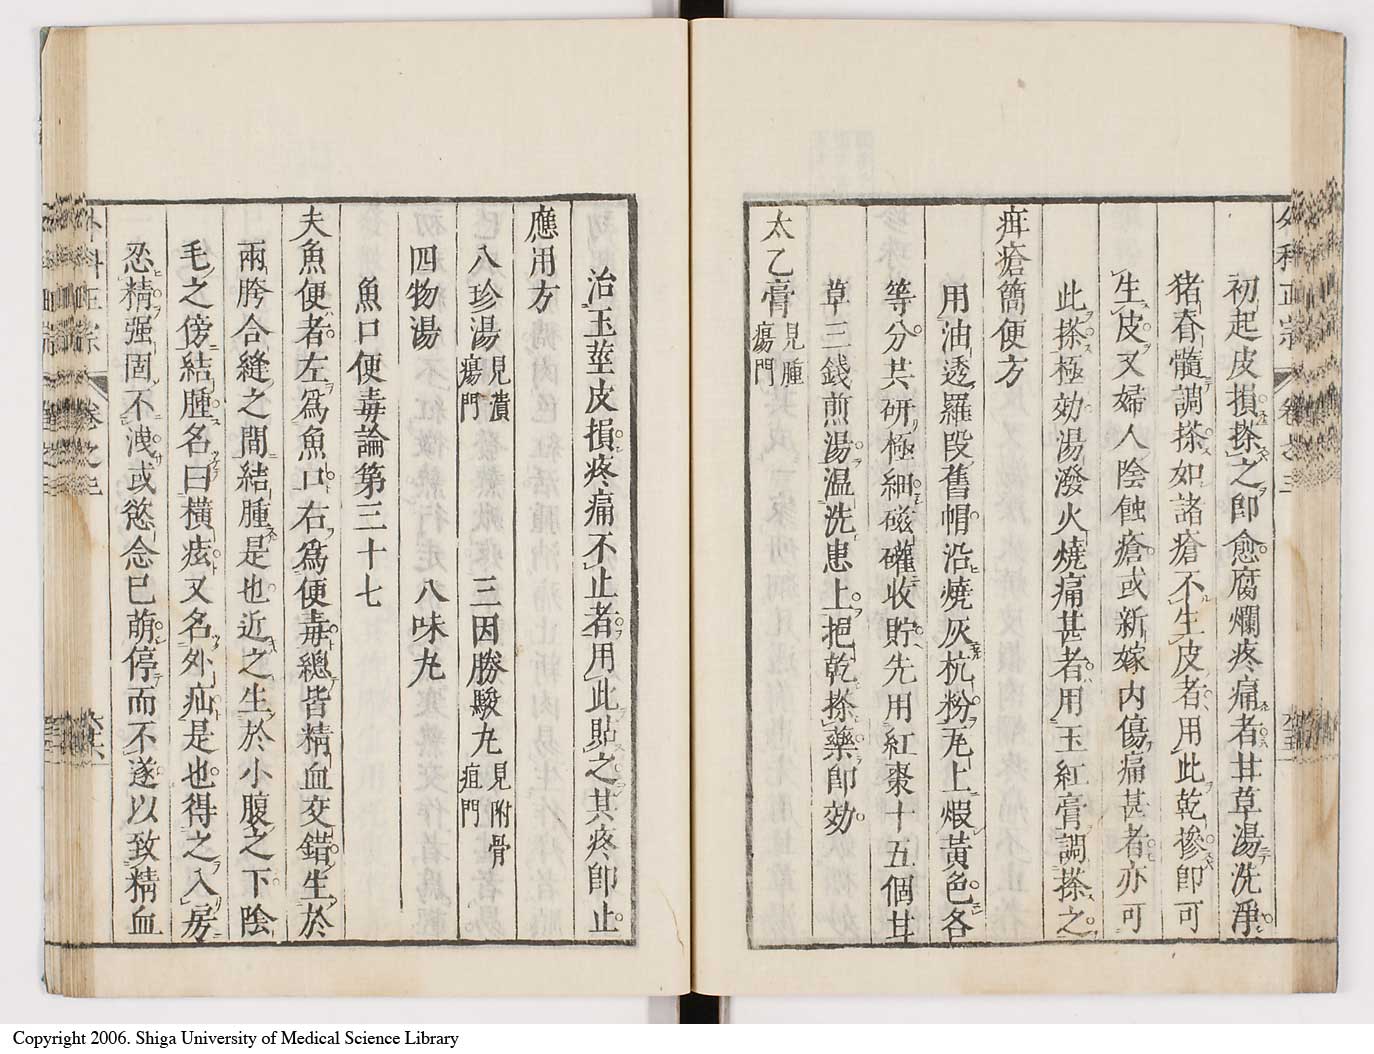 初起皮損搽之即愈腐爛疼痛者甘草湯洗淨
猪脊髓調搽如諸瘡不生皮者用此乾摻即可
生皮又婦人陰蝕瘡或新嫁内傷痛甚者亦可
此搽極効湯潑火燒痛甚者用玉紅膏調搽之
疳瘡簡便方
用油透羅段舊帽沿燒灰杭粉瓦上煆黃色各
等分共研極細磁礶收貯先用紅棗十五個甘
草三錢煎湯温洗患上挹乾搽藥即効
太乙膏見腫瘍門
治玉莖皮損疼痛不止者用此貼之其疼即止
應用方
八珍湯見潰瘍門 三因勝駿丸見附骨疽門
四物湯 八味丸
魚口便毒論第三十七
夫魚便者左爲魚口右爲便毒總皆精血交錯生於
兩胯合縫之間結腫是也近之生於小腹之下陰
毛之傍結腫名曰橫痃又名外疝是也得之入房
忍精强固不洩或慾念已萌停而不遂以致精血
外科正宗 卷之三
Copyright 2006. Shiga University of Medical Science Library